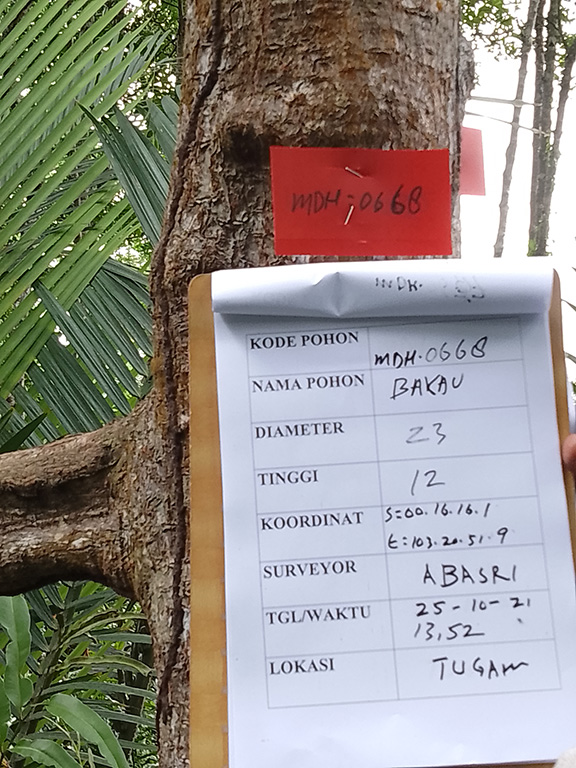 MDH:0668
MDH.
KODE POHON MDH.0668
NAMA POHON BAKAU
DIAMETER 23
TINGGI 12
KOORDINAT S=00.16.16.1
E=103.20.51.9
SURVEYOR ABASRI
TGL/WAKTU 25-10-21
13,52
LOKASI